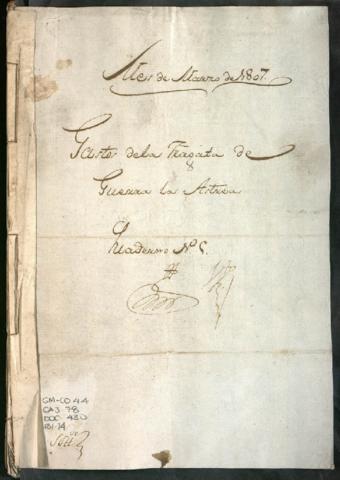 Mes de Marzo de 1807
Gastos de la Fragata de
Guerra la Astrea
Quaderno Nº 5.
GM-CO 44
CAJ 78
DOC 430
181-14